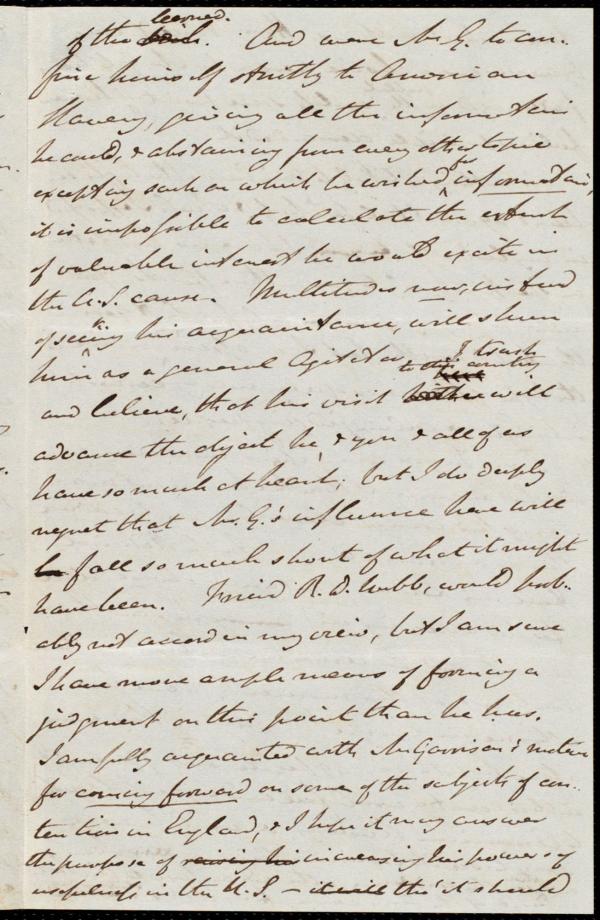 learned.
of the . And were Mr G. to con-
fine himself strictly to American
Slavery, giving all the information
he could, & abstaining from every other topic
excepting such on which he wished for information,
it is impossible to calculate the extent
of valuable interest he would excite in
the A.S. cause. Multitudes now, instead
of seeking his acquaintance, will shun
him as a general Agitator. I trust
to this country
and believe, that his visit hither will
advance the object he & you & all of us
have so much at heart; but I do deeply
regret that Mr. G.'s influence here will
be fall so much short of what it might
have been. Friend R. D. Webb, would prob-
ably not accord in my view, but I am sure
I have more ample means of forming a
judgment on this point than he has.
I am fully acquainted with Mr Garrison's motive
for coming forward on some of the subjects of con-
tention in England, & I hope it may answer
the purpose of increasing his powers of
usefulness in the U.S. – it will tho' it should